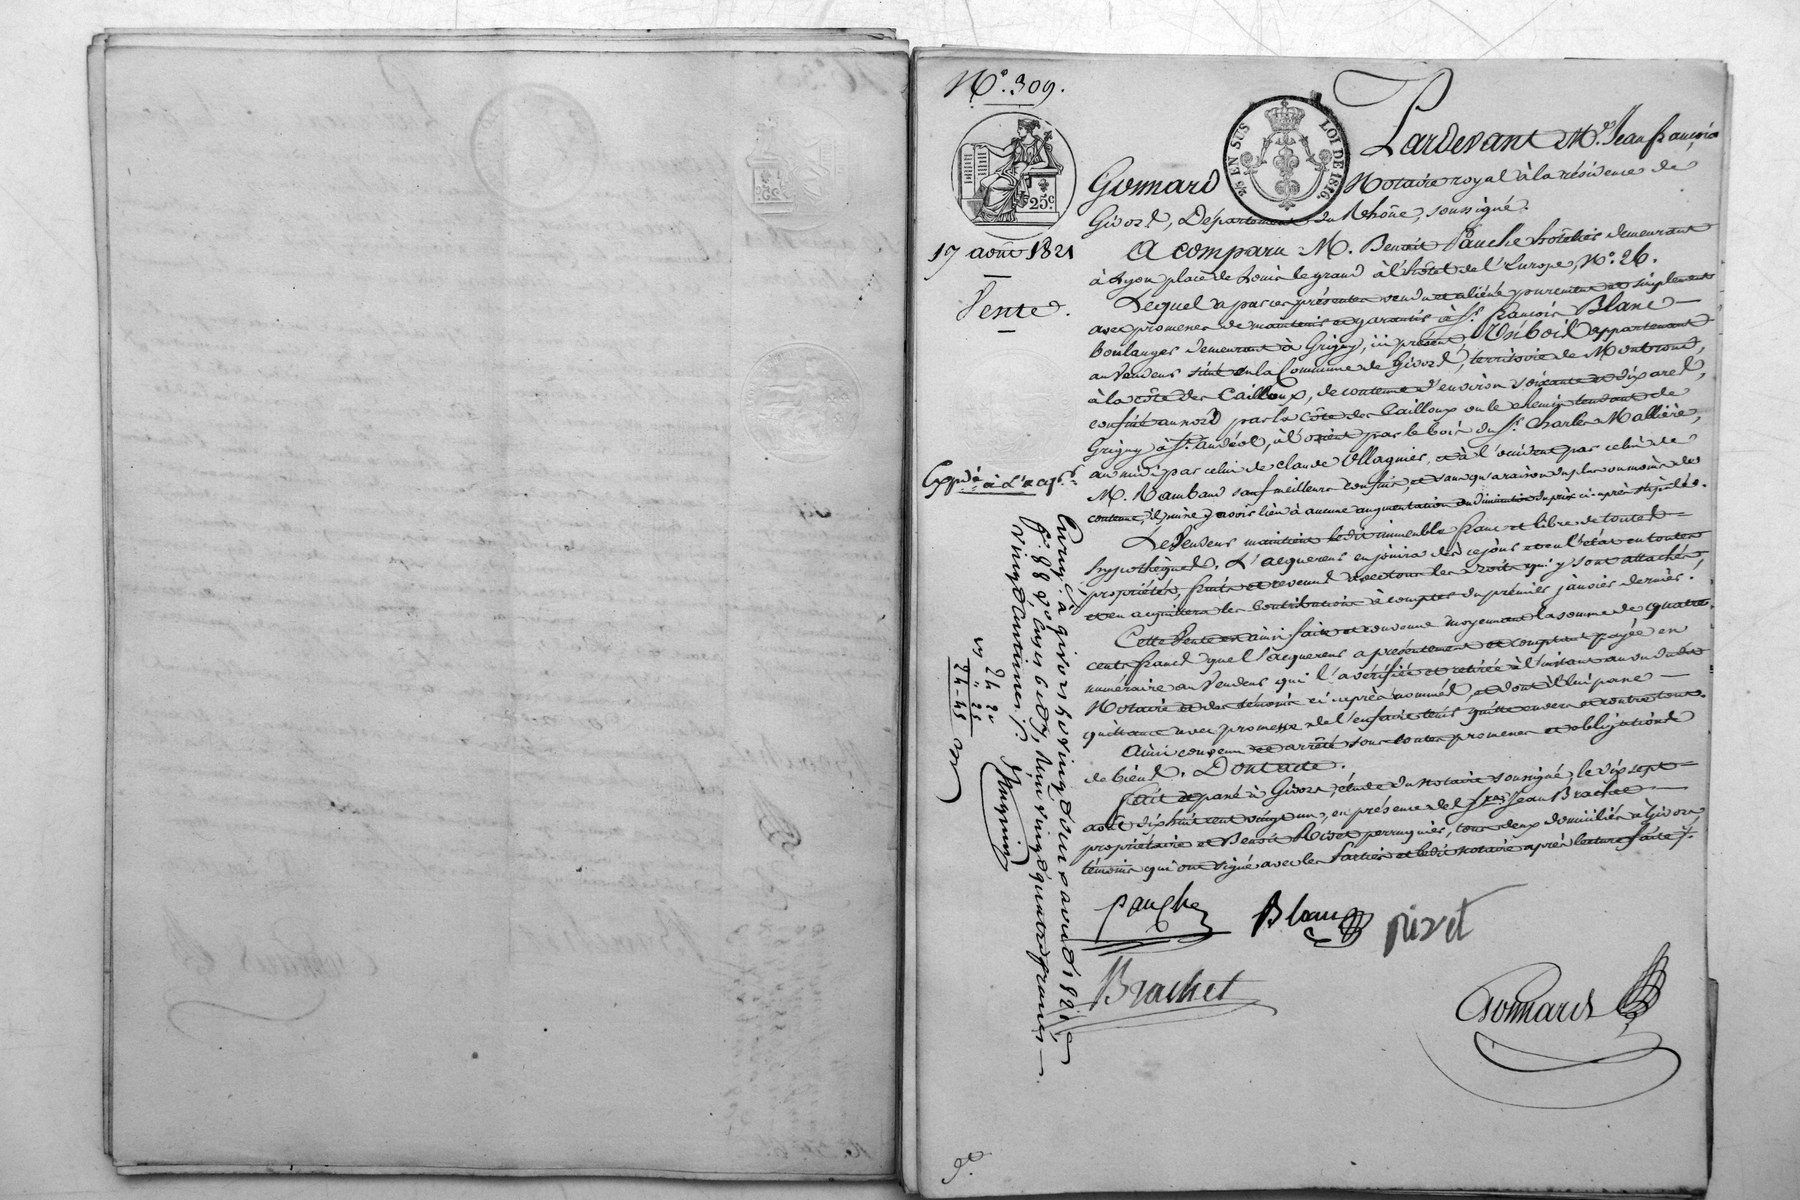 N.º 309.
25.c
17 août 1821
Vente.
Expédié à l'acq.r
EN SUS LOI DE 1816.
Pardevant M.e Jean françois
Gonnard Notaire royal à la résidence de
Givors, Département du Rhône, soussigné.
A comparu M. Benoit Pauche hôtelier demeurant
à Lyon place de Louis le grand à l'hôtel de l'Europe, N.º 26.
Lequel a par ces présentes vendu et aliéné purement et simplement
avec promesse de maintenir et garantir à S.r françois Blanc
Boulanger demeurant à Grigny, ici présent Un bois appartenant
au Vendeur situé en la Commune de Givors, territoire de Montrond,
à la côte des Cailloux, de contenue d'environ soixante et dix ares,
confiné au nord par la côte des Cailloux ou le chemin tendant de
Grigny à S.t andéol, à l'orient par le bois du S.r Charles Mallière,
au midi par celui de Claude Ollagnier, et à l'occident par celui de
M. Rambaud sauf meilleurs confins, et sans qu'à raison du plus ou moins de
contenue, il puisse y avoir lieu à aucune augmentation ou diminution du prix ci-après stipulé.
Le Vendeur maintient ledit immeuble franc et libre de toutes
hypothèques. L'acquereur en jouira dès ce jour et en l'état en toutes
propriétés, fruits et revenus avec tous les droits qui y sont attachés,
et en acquittera les Contributions à compter du premier janvier dernier.
Cette Vente est ainsi faite et convenue moyennant la somme de quatre
cents francs que l'acquereur a présentement et comptant payée en
numéraire au Vendeur qui l'a vérifiée et retirée à l'instant au vu dudit
Notaire et des témoins ci-après nommés, et dont il lui passe
quittance avec promesse de l'en faire tenir quitte envers et contre tous.
Ainsi convenu et arrêté sous toutes promesses et obligations
de biens. Dont acte.
Fait et passé à Givors, étude du notaire soussigné, le dix sept
août dix huit cent vingt un, en présence des S.rs Jean Brachet
propriétaire et Benoit Rivet perruquier, tous deux domiciliés à Givors,
témoins qui ont signé avec les Parties et ledit notaire après lecture faite ./.
Pauche Blanc rivet
Brachet
Gonnard
Enreg.é à givors le vingt deux aout 1821,
f.o 88 v.o, reçu vingt quatre francs
vingt centimes ./.
24 20
24-45